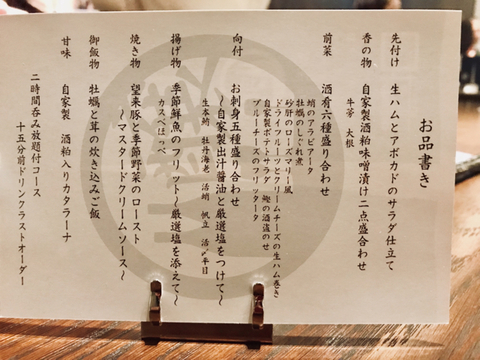 お品書き
先付け 生ハムとアボカドのサラダ仕立て
香の物 自家製酒粕味噌漬け二点盛合わせ
牛蒡 大根
前菜 酒肴六種盛り合わせ
蛸のアラビアータ
牡蠣のしぐれ煮
砂肝のローズマリー風
ドライフルーツとクリームチーズの生ハム巻き
自家製ポテトサラダ 鰹の酒盗のせ
ブルーチーズのフリッタータ
向付 お刺身五種盛り合わせ
～自家製出汁醤油と厳選塩をつけて～
生本鮪 牡丹海老 活蛸 帆立 活〆平目
揚げ物 季節鮮魚のフリット～厳選塩を添えて～
カスべほっぺ
焼き物 望来豚と季節野菜のロースト
～マスタードクリームソース～
御飯物 牡蠣と茸の炊き込みご飯
甘味 自家製 酒粕入りカタラーナ
二時間呑み放題付コース
十五分前ドリンクラストオーダー